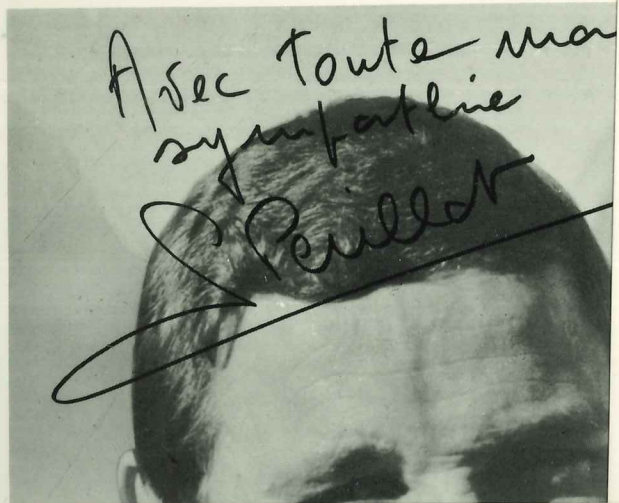 Avec toute ma
sympathie
Peillot